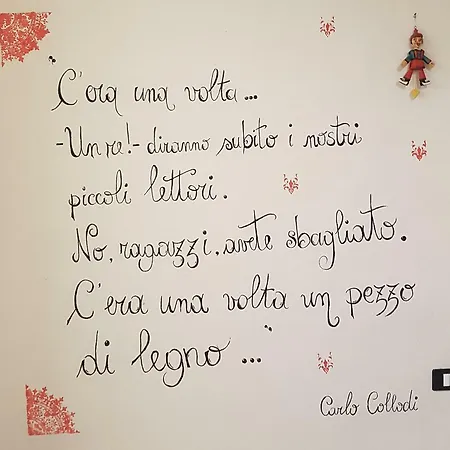 "C'era una volta...
-Un re!- diranno subito i nostri
piccoli lettori.
No, ragazzi, avete sbagliato.
C'era una volta un pezzo
di legno ..."
Carlo Collodi